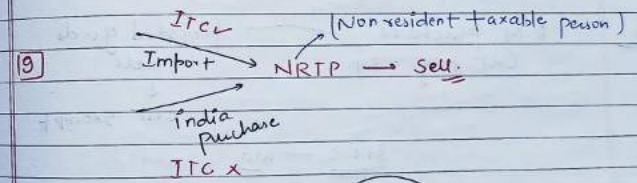 ITC✓
(Non resident taxable person)
19 Import → NRTP → Sell.
india
purchase
ITC x